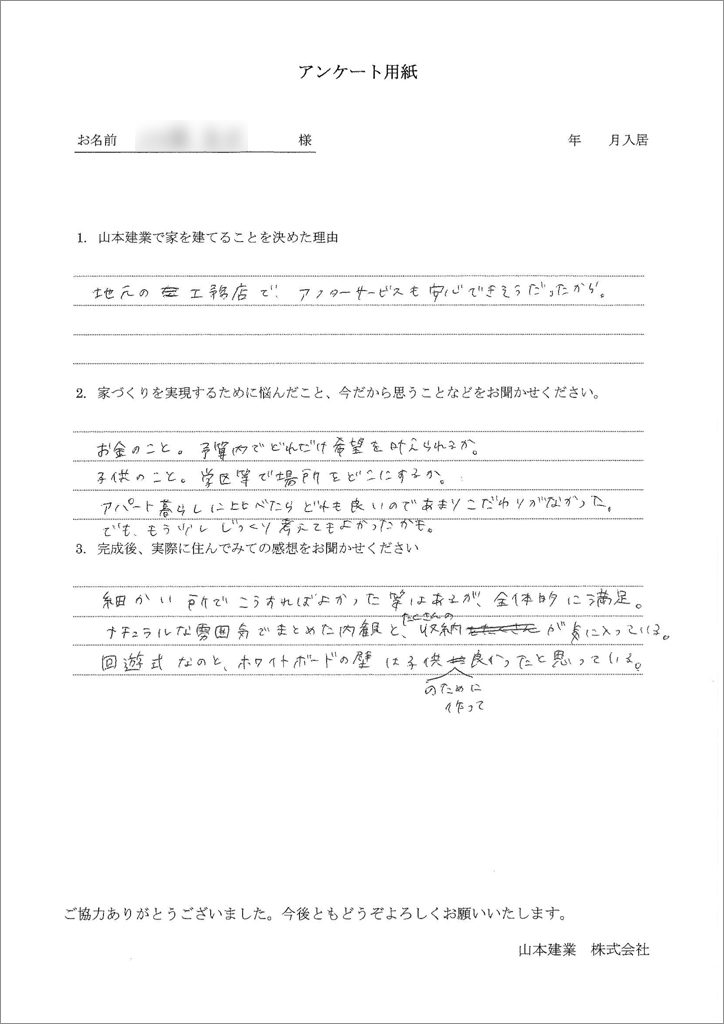 アンケート用紙
お名前 様 年 月入居
1. 山本建業で家を建てることを決めた理由
地元の工務店で、アフターサービスも安心できそうだったから。
2. 家づくりを実現するために悩んだこと、今だから思うことなどをお聞かせください。
お金のこと。予算内でどれだけ希望を叶えられるか。
子供のこと。学区等で場所をどこにするか。
アパート暮らしに比べたらどれも良いのであまりこだわりがなかった。
でも、もう少しじっくり考えてもよかったかも。
3. 完成後、実際に住んでみての感想をお聞かせください
細かい所でこうすればよかった等はあるが、全体的に満足。
ナチュラルな雰囲気でまとめた内観と、たくさんの収納が気に入っている。
回遊式なのと、ホワイトボードの壁は子供のために作って良かったと思っている。
ご協力ありがとうございました。今後ともどうぞよろしくお願いいたします。
山本建業 株式会社